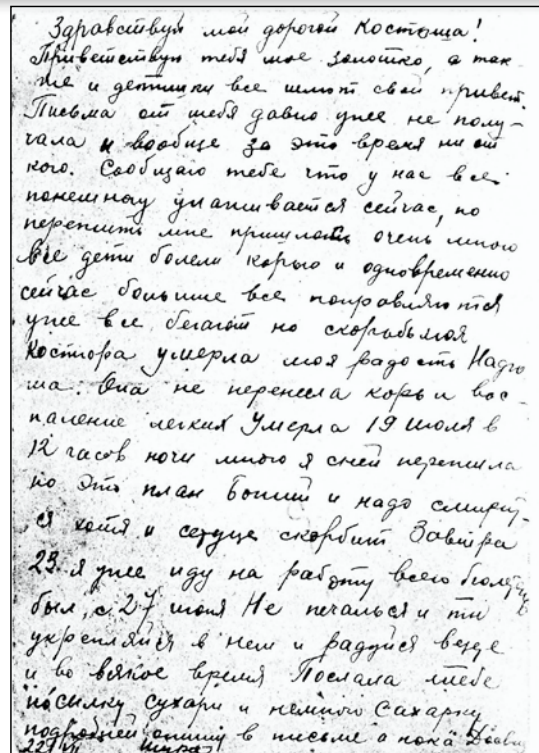 Здравствуй мой дорогой Костюша!
Приветствую тебя мое золотко, а так-
же и детишки все шлют свой привет.
Письма от тебя давно уже не полу-
чала и вообще за это время ни от
кого. Сообщаю тебе что у нас все
понемногу улаживается сейчас, но
пережить мне пришлось очень много
Все дети болели корью и одновременно
сейчас больше все поправляются
уже все бегают но скорбь моя
умерла моя радость Надю
ша. Она не перенесла корь и вос-
паление легких Умерла 19 июля в
12 часов ночи много я с ней пережила
но это план Божий и надо смирит-
ся хотя и сердце скорбит Завтра
23. я уже иду на работу всего
был, с 27 июня Не печалься и ты
укрепляйся в нем и радуйся везде
и во всякое время Послала тебе
посылку сухари и немного сахарку
подробней опишу в письме а пока
22/VII